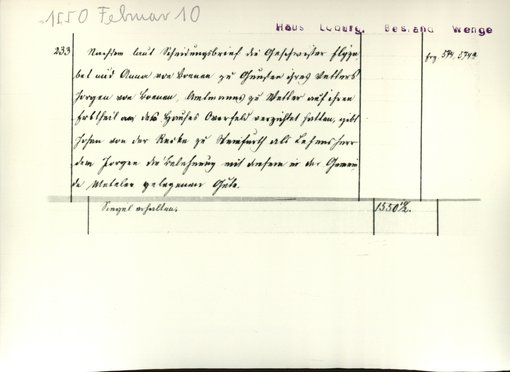 1550 Februar 10
Haus Loburg, Bestand Wenge
233 Nachdem laut Scheidungsbrief die Geschwister Elyza
bet und Anna von Brenen zu Gunsten ihres Vetters
Jorgen von Brenen, Amtmanns zu Wetter auf ihren
Erbtheil an des Hauses Overfeld verzichtet hatten, gibt
Johan von der Recke zu Steinfurth als Lehensherr
dem Jorgen die Belehnung mit diesem in der Gemein
de Metelen gelegenen Gute.
Siegel erhalten.
1550 10/2.